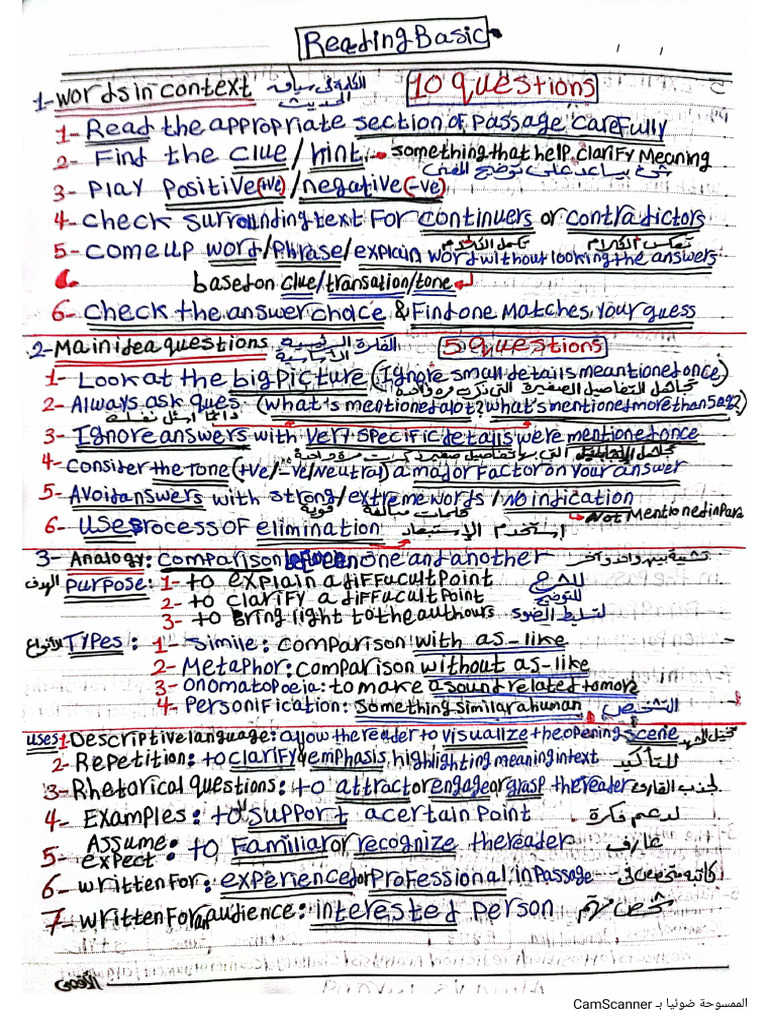 Reading Basic
1- words in context الكلمة فى سياق الحديث 10 questions
1- Read the appropriate section of Passage carefully
2- Find the clue/hint → something that help clarify Meaning
شئ يساعد على توضيح المعنى
3- Play Positive (+ve)/negative (-ve)
4- check surrounding text For continuers or contradictors
تكمل الكلام تعكس الكلام
5- come up word/Phrase/explain word without looking the answers
based on clue/transation/tone
6- check the answer choice & Find one Matches your guess
2- Main idea questions الفكرة الرئيسية الأساسية 5 questions
1- Look at the big Picture (Ignore small details meantioned once)
تجاهل التفاصيل الصغيرة التى ذكرت مرة واحدة
2- Always ask ques (what's mentioned alot? what's mentioned more than 5 ag?)
دائما اسئل نفسك
3- Ignore answers with very specific details were mentioned once
4- consider the Tone (+ve/-ve/neutral) a major Factor on your answer
5- Avoid answers with strong/extreme words/no indication
كلمات مبالغة قوية → Not Mentioned in Para
6- Use process of elimination استخدم الإستبعاد
3- Analogy: comparison between one and another تشبية بين واحد وآخر
الهدف Purpose: 1- to explain a diffucult point للشرح
2- to clarify a diffucult point للتوضيح
3- to Bring light to the authours لتسلط الضوء
الأنواع Types: 1- simile: comparison with as-like
2- Metaphor: comparison without as-like
3- Onomatopoeia: to make a sound related to more
4- Personification: something similar a human التشخيص
uses 1- Descriptive language: allow the reader to visualize the opening scene تخيل المشهد
2- Repetition: to clarify & emphasis, highlighting meaning in text للتأكيد
3- Rhetorical questions: to attract or engage or grasp the reader لجذب القارئ
4- Examples: to support a certain point لدعم فكرة
5- Assume: expect: to Familiar or recognize the reader عارف
6- written For: experienced or professional in Passage كاتبه متخصص فى
7- written For an audience: interested person شخص مهتم
الأقصى
الممسوحة ضوئيا بـ CamScanner